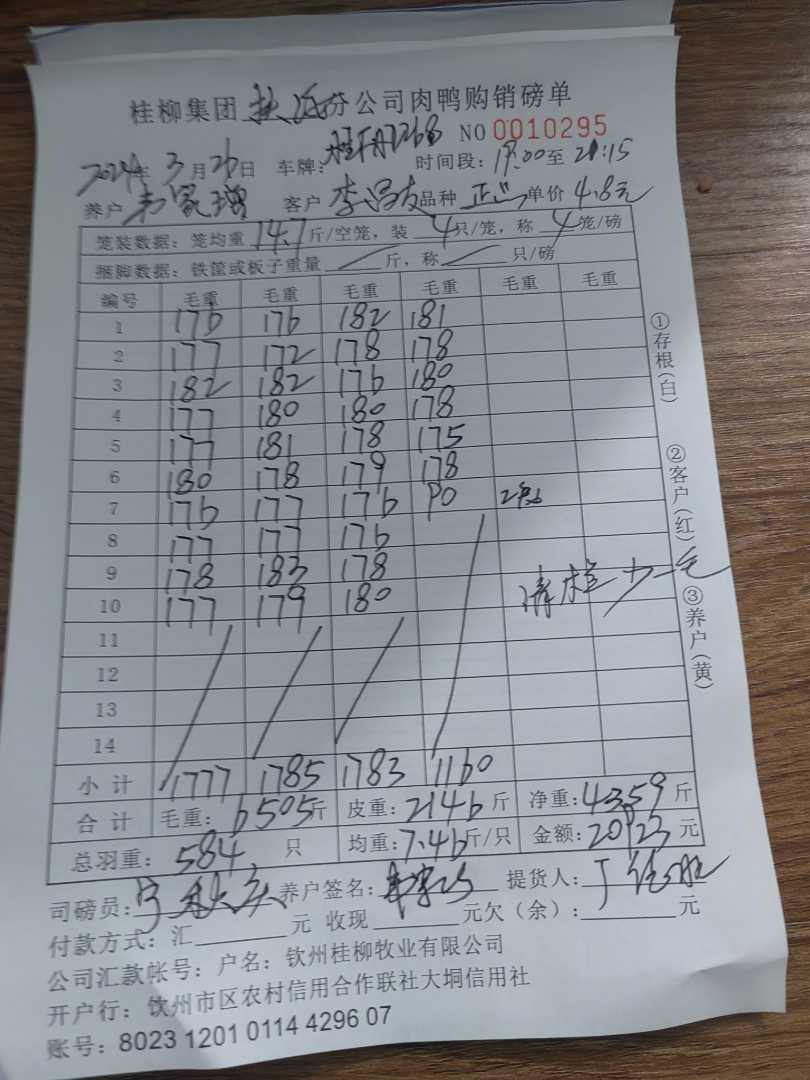 桂柳集团 分公司肉鸭购销磅单
NO 0010295
2024年3月26日 车牌: 时间段: 19:00至21:15
养户 韦家增 客户 李昌友 品种 单价 4.8元
笼装数据: 笼均重 14.7 斤/空笼, 装 4 只/笼, 称 4 笼/磅
捆脚数据: 铁筐或板子重量 / 斤, 称 / 只/磅
编号 毛重 毛重 毛重 毛重 毛重 毛重
1 176 176 182 181
2 177 172 178 178
3 182 182 176 180
4 177 180 180 178
5 177 181 178 175
6 180 178 179 178
7 176 177 176 90
8 177 177 176
9 178 183 178
10 177 179 180
11
12
13
14
小计 1777 1785 1783 1160
合计 毛重: 6505斤 皮重: 2146斤 净重: 4359斤
总羽重: 584 只 均重: 7.46斤/只 金额: 20923元
司磅员: 养户签名: 提货人:
付款方式: 汇 元 收现 元欠(余): 元
公司汇款帐号: 户名: 钦州桂柳牧业有限公司
开户行: 钦州市区农村信用合作联社大垌信用社
账号: 8023 1201 0114 4296 07
①存根(白)
②客户(红)
③养户(黄)